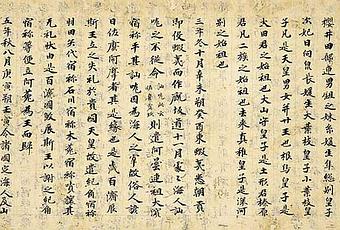 櫻井田部連男鉏之妹糸媛生隼総別皇子
次妃日向泉長媛生大葉枝皇子小葉枝皇
子凡是天皇男女并廿王也根鳥皇子是
大田君之始祖也大山守皇子是土形君榛原
君凡二族之始祖也去来真稚皇子是深河
別之始祖也
三年冬十月辛未朔癸酉東蝦夷悉朝貢
即役蝦夷而作厩坂道十一月處々海人訕
哤之不從命則遣阿曇連祖大濱
宿祢平其訕哤因為海人之宰故俗人諺
曰佐麼阿摩者其是緣也是歳百濟辰
斯王立之失礼於貴國天皇故遣紀角宿祢
羽田矢代宿祢石川宿祢木菟宿祢嘖讓其
无礼狀由是百濟國殺辰斯王以謝之紀角
宿祢等便立阿花為王而歸
五年秋八月庚寅朔壬寅令諸國定海人及山